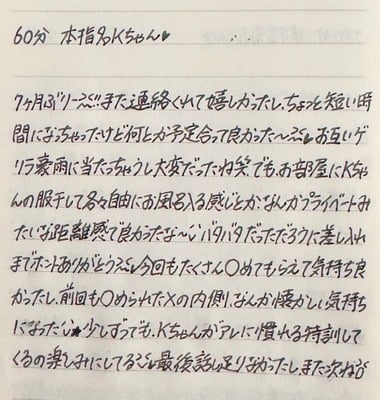 60分 本指名Kちゃん♥
7ヶ月ぶりーー!!また連絡くれて嬉しかったし、ちょっと短い時
間になっちゃったけど何とか予定合って良かった〜 お互いゲ
リラ豪雨に当たっちゃうし大変だったね笑、でも、お部屋にKちゃ
んの服干して各々自由にお風呂入る感じとかなんかプライベートみ
たいな距離感で良かったな〜 バタバタだっただろうに差し入れ
までホントありがとう 今回もたくさん〇めてもらえて気持ち良
かったし、前回も〇められた×の内側、なんか懐かしい気持ち
になった★少しずつでも、Kちゃんがアレに慣れる特訓して
くるの楽しみにしてる 最後話し足りなかったし、また次ね